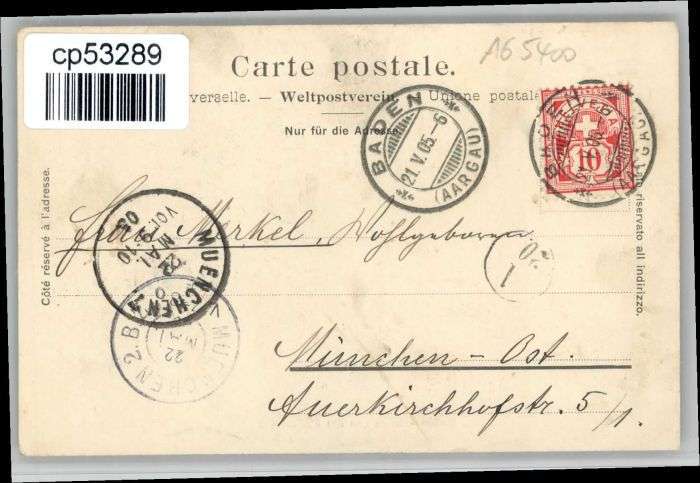 cp53289
AG 5400
Carte postale.
verselle. — Weltpostverein — Union postale
Nur für die Adresse
BADEN
21.V.05.-6
(AARGAU)
BADEN
(AARGAU)
10
Côté réservé à l'adresse.
riservato all indirizzo.
MUENCHEN
MAI
Frau Merkel, Wohlgeboren
1
MUENCHEN 2 B
22
MAI
München - Ost.
Auerkirchhofstr. 5/1.